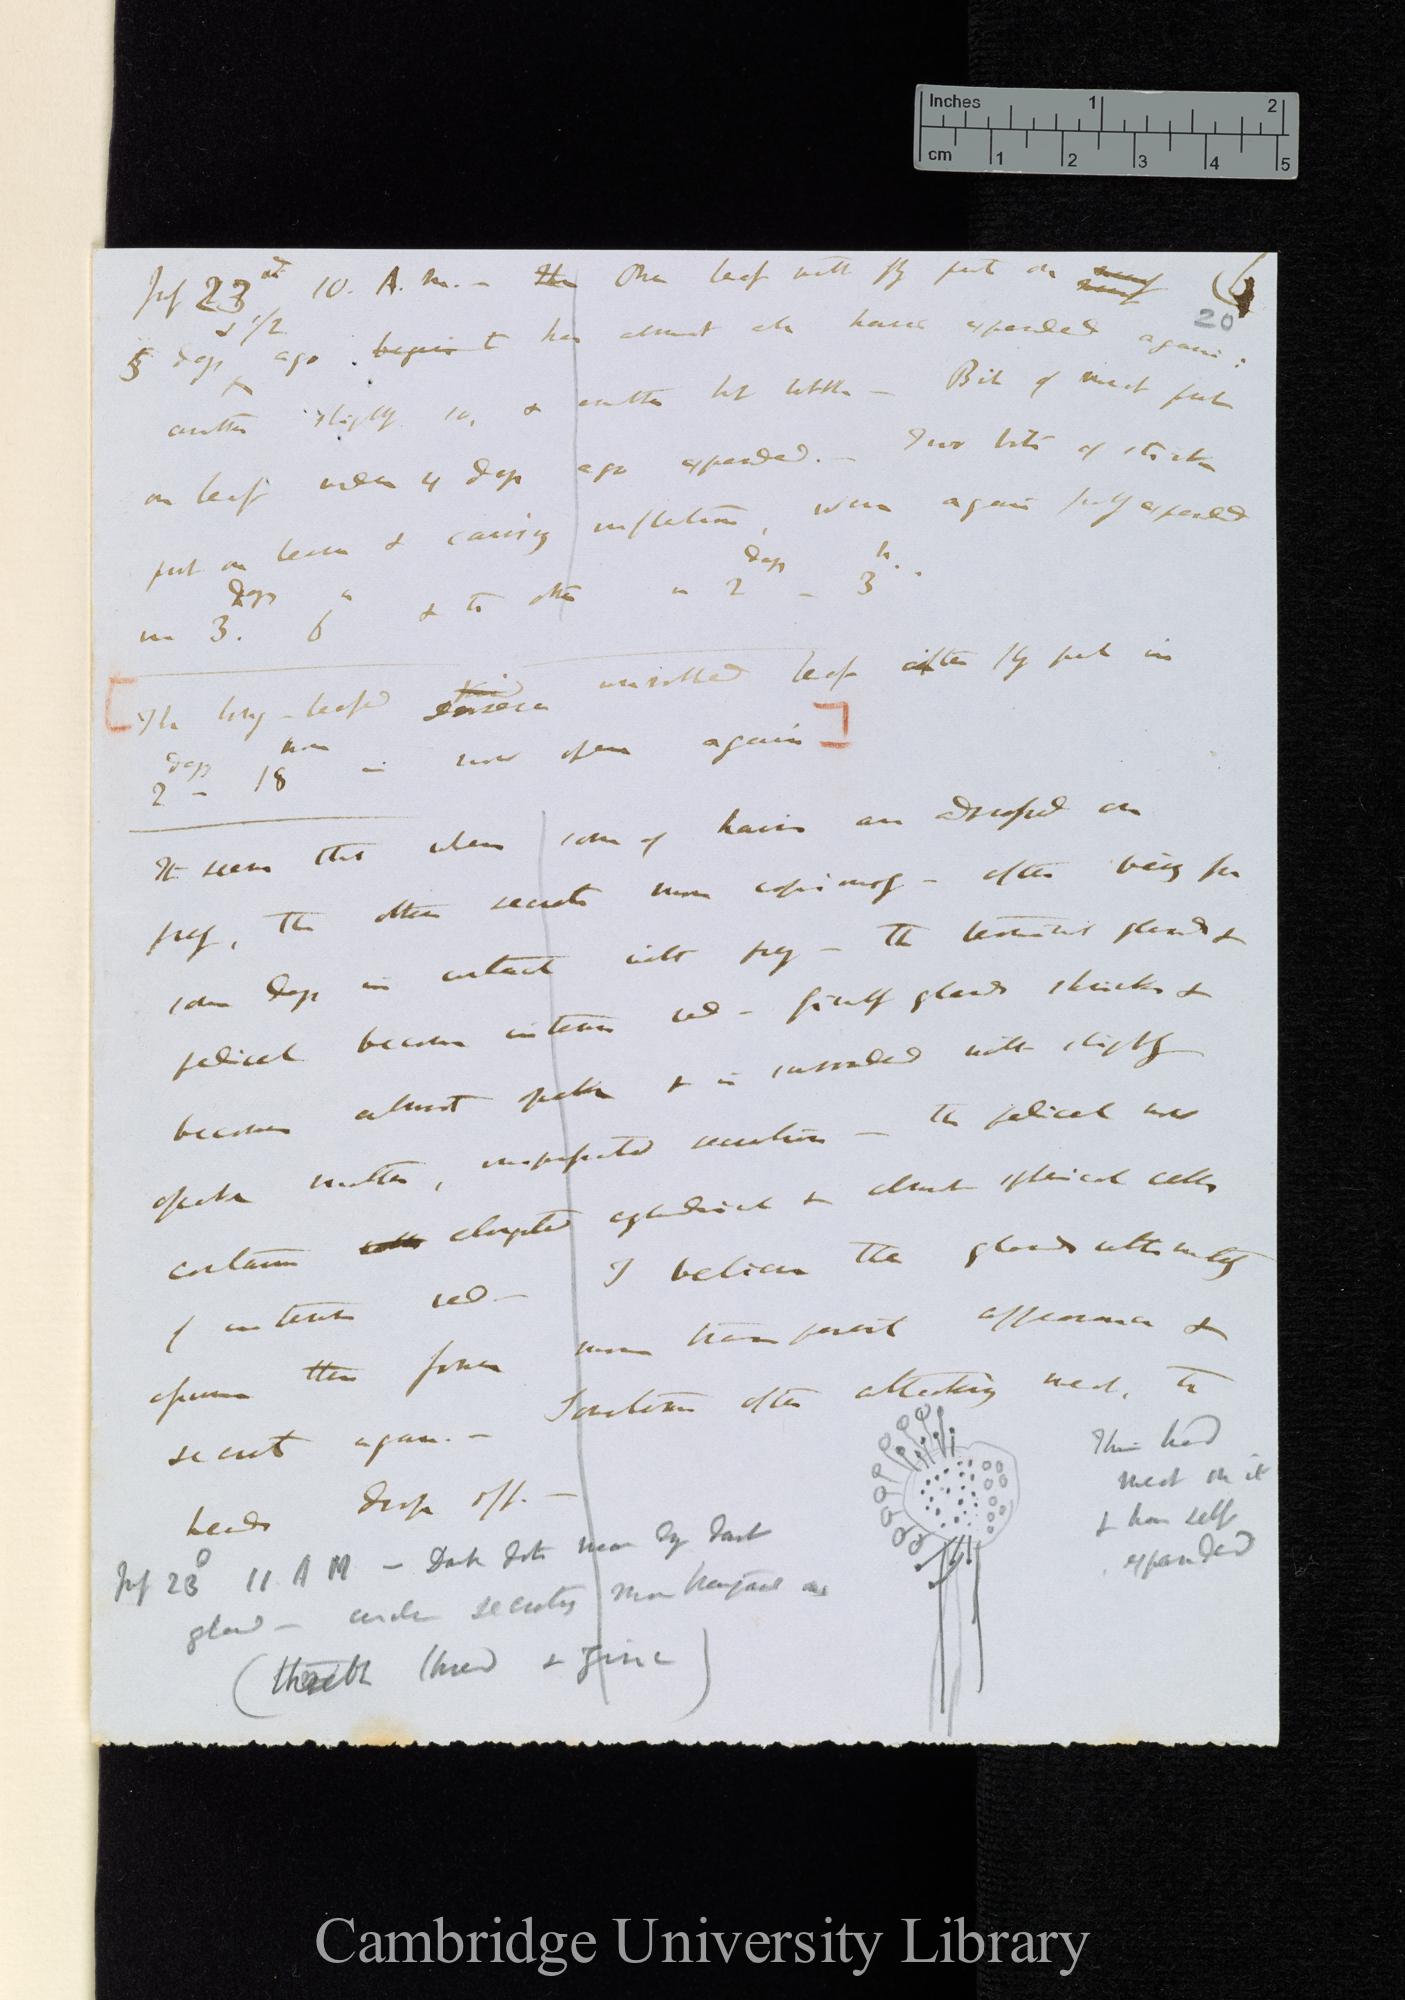 Inches 1 2
cm 1 2 3 4 5
(6
20
July 23d 10. A.M. — The One leaf with fly put on
& 1/2
5 days ago begins t has almost all hairs expanded again;
another slightly so, & another but little — Bit of meat put
on leaf under 4 days ago expanded. — Two bits of
put on leaves & causing inflection, were again fully expanded
in 3. days 6 h & the other in 2 days — 3 h.
The long-leafed Drosera unrolled leaf after fly put in
2 days — 18 hours — now open again
It seems that when some of hairs are on
prey, the others secrete more copiously — after being for
some days in contact with prey — the terminal glands &
pedicel become intense red — finally glands shrinks &
becomes almost opake & is surrounded with slightly
opake matter, inspissated secretion — the pedicel now
contains cells elongated cylindrical & almost spherical cells
of intense red — I believe the glands ultimately
assume then former more transparent appearance &
secrete again. — Sometimes after attacking meat, the
heads drop off. —
This had
meat on it
& has self
expanded
July 23d 11 A M — Dark dots mean dry dark
gland — circles secreting more transparent ones
Cambridge University Library